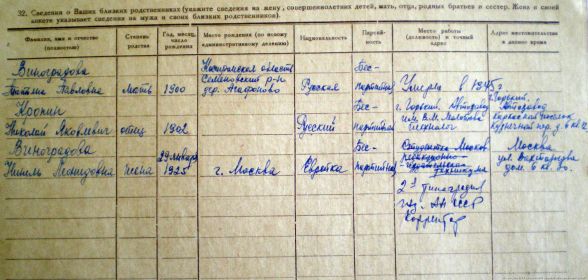 32. Сведения о Ваших близких родственниках (укажите сведения на жену, совершеннолетних детей, мать, отца, родных братьев и сестер. Жена в своей
анкете указывает сведения на мужа и своих близких родственников).
Фамилия, имя и отчество (полностью)
Степень родства
Год, месяц, число рождения
Место рождения (по новому административному делению)
Национальность
Партийность
Место работы (должность) и точный адрес
Адрес местожительства в данное время
Виноградова Татьяна Павловна
мать
1900
область Семеновский р-н дер. Агафоново
Русская
Беспартийная
Умерла в 1945 г
Кропин Николай Яковлевич
отец
1902
Русский
Беспартийный
г. Горький. Автозавод им. В.М. Молотова
г. Горький. Автозавод
Виноградова Нинель Леонидовна
жена
29 января 1925
г. Москва
Еврейка
Беспартийная
Студентка Москов
техникума
2я типография
изд. АН СССР
Корректор
г. Москва
ул.
дом. 6 кв.